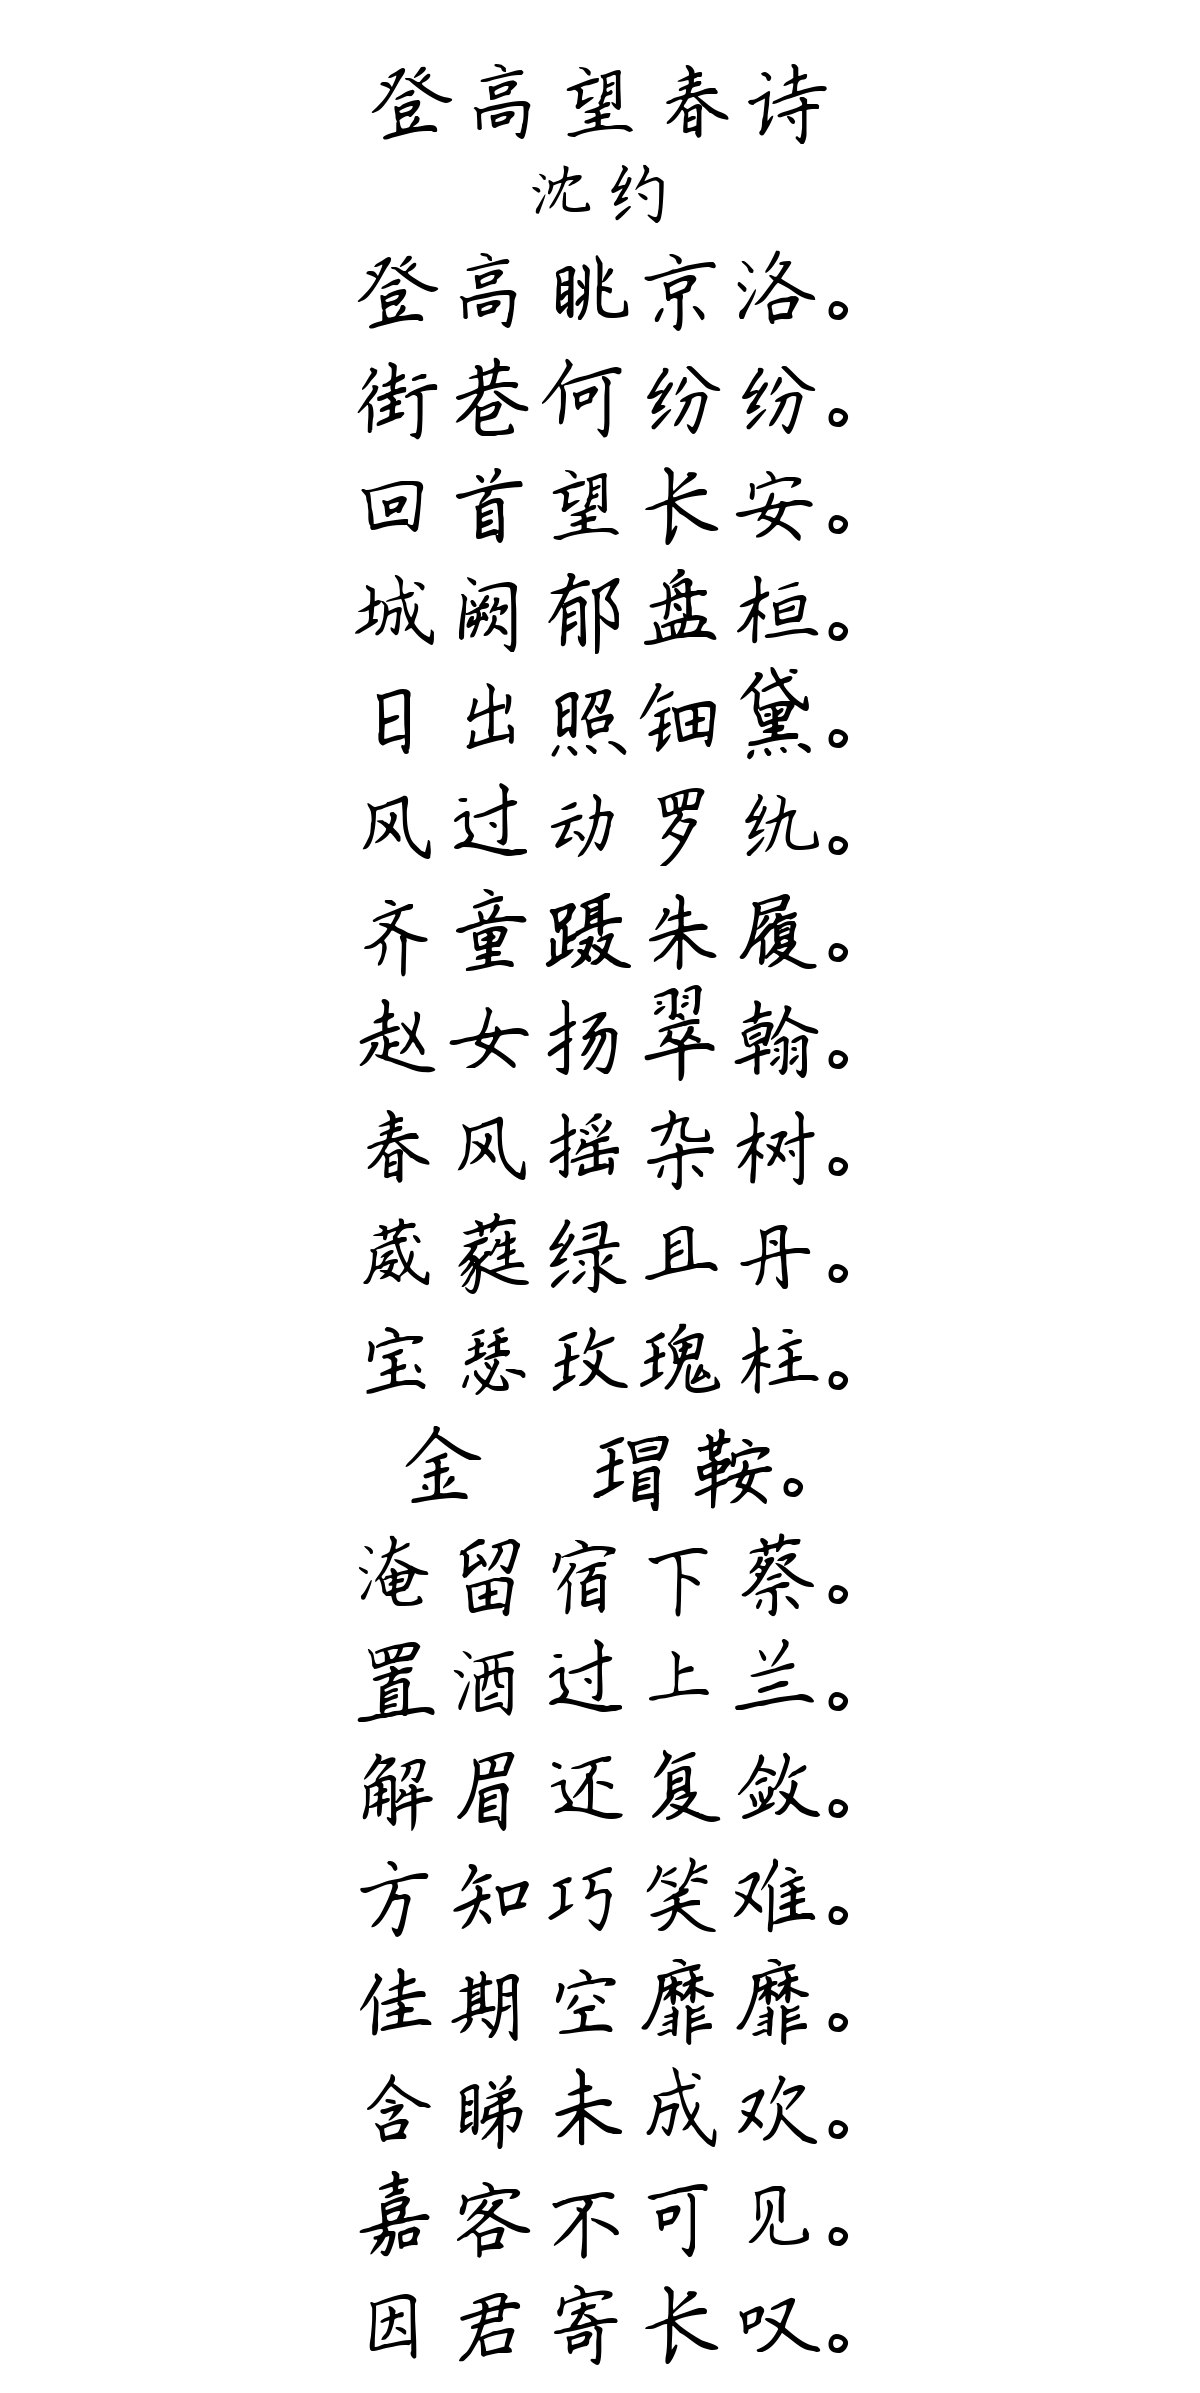 登高望春诗
沈约
登高眺京洛。
街巷何纷纷。
回首望长安。
城阙郁盘桓。
日出照钿黛。
风过动罗纨。
齐童蹑朱履。
赵女扬翠翰。
春风摇杂树。
葳蕤绿且丹。
宝瑟玫瑰柱。
金 瑁鞍。
淹留宿下蔡。
置酒过上兰。
解眉还复敛。
方知巧笑难。
佳期空靡靡。
含睇未成欢。
嘉客不可见。
因君寄长叹。